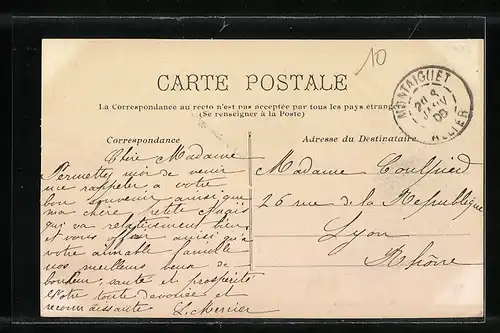 10
CARTE POSTALE
La Correspondance au recto n'est pas acceptée par tous les pays étrangers
(Se renseigner à la Poste)
MONTAIGUET
JANV
06
ALLIER
Correspondance
Chère Madame
Permettez moi de venir
me rappeler à votre
bon souvenir ainsi que
ma chère petite
qui va relativement bien
et vous offrir ainsi qu'à
votre aimable famille
nos meilleurs vœux de
bonheur, santé et prospérité
Votre toute dévouée et
reconnaissante L. Mercier
Adresse du Destinataire
Madame
26 rue de la République
Lyon
Rhône